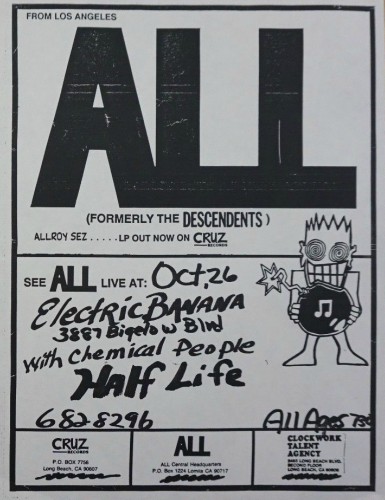 FROM LOS ANGELES
ALL
(FORMERLY THE DESCENDENTS)
ALLROY SEZ.....LP OUT NOW ON CRUZ RECORDS
SEE ALL LIVE AT: Oct, 26
Electric BANANA
3887 Bigelow Blvd
With Chemical People
Half Life
682-8296
All Ages 730
CRUZ
RECORDS
P.O. BOX 7756
Long Beach, CA 90807
ALL
ALL Central Headquarters
P.O. Box 1224 Lomita CA 90717
CLOCKWORK
TALENT
AGENCY
LONG BEACH BLVD.
SECOND FLOOR
LONG BEACH, CA